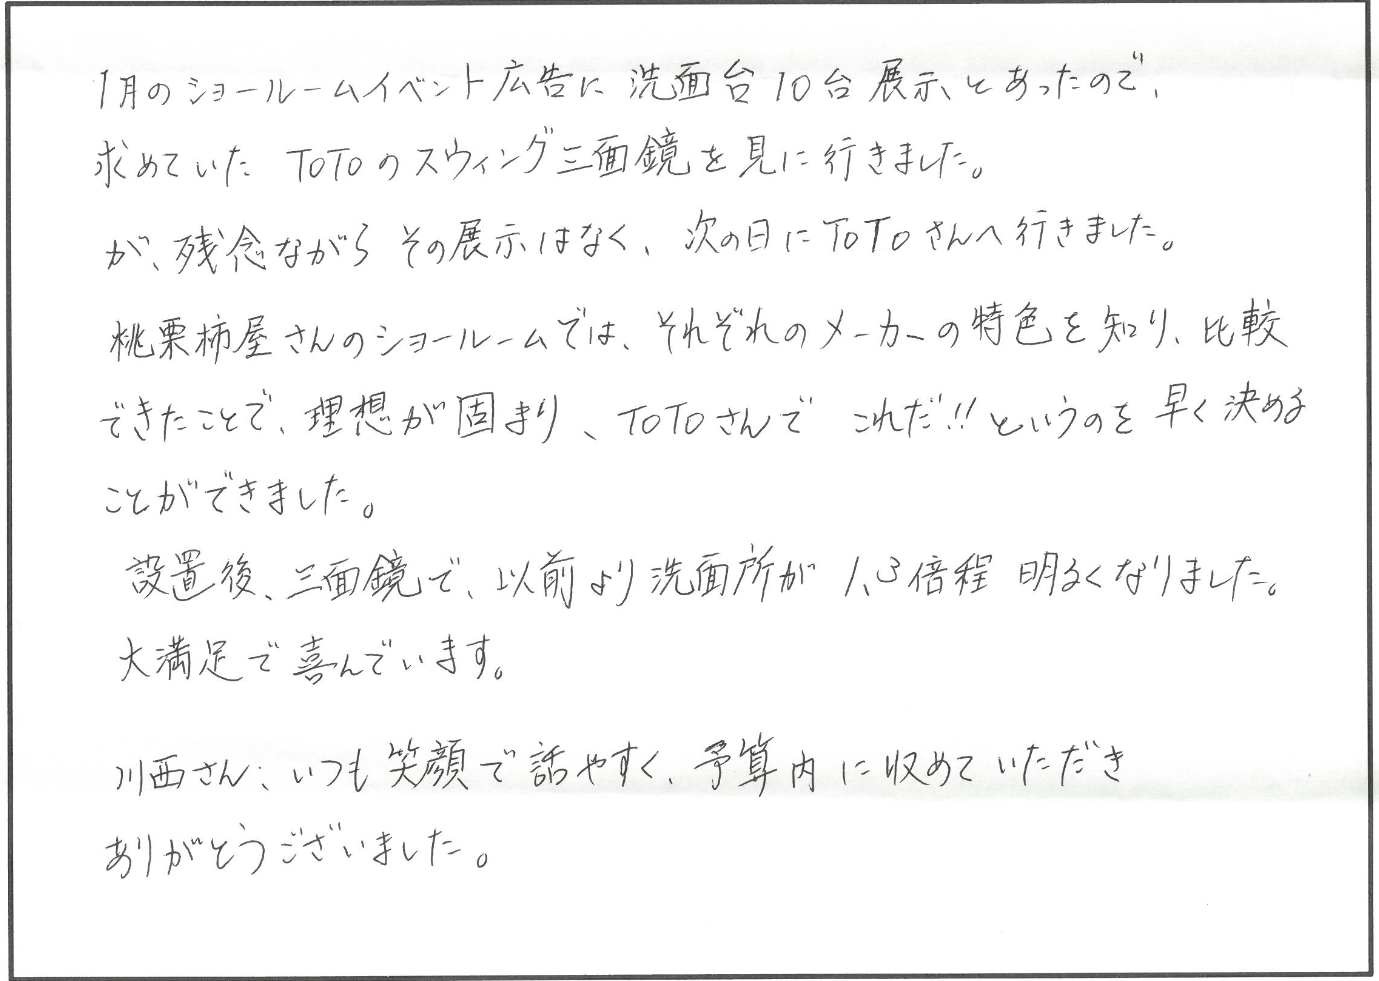 1月のショールームイベント広告に洗面台10台展示とあったので、
求めていたTOTOのスウィング三面鏡を見に行きました。
が、残念ながらその展示はなく、次の日にTOTOさんへ行きました。
桃栗柿屋さんのショールームでは、それぞれのメーカーの特色を知り、比較
できたことで、理想が固まり、TOTOさんで これだ!!というのを早く決める
ことができました。
設置後、三面鏡で、以前より洗面所が1.3倍程 明るくなりました。
大満足で喜んでいます。
川西さん、いつも笑顔で話やすく、予算内に収めていただき
ありがとうございました。